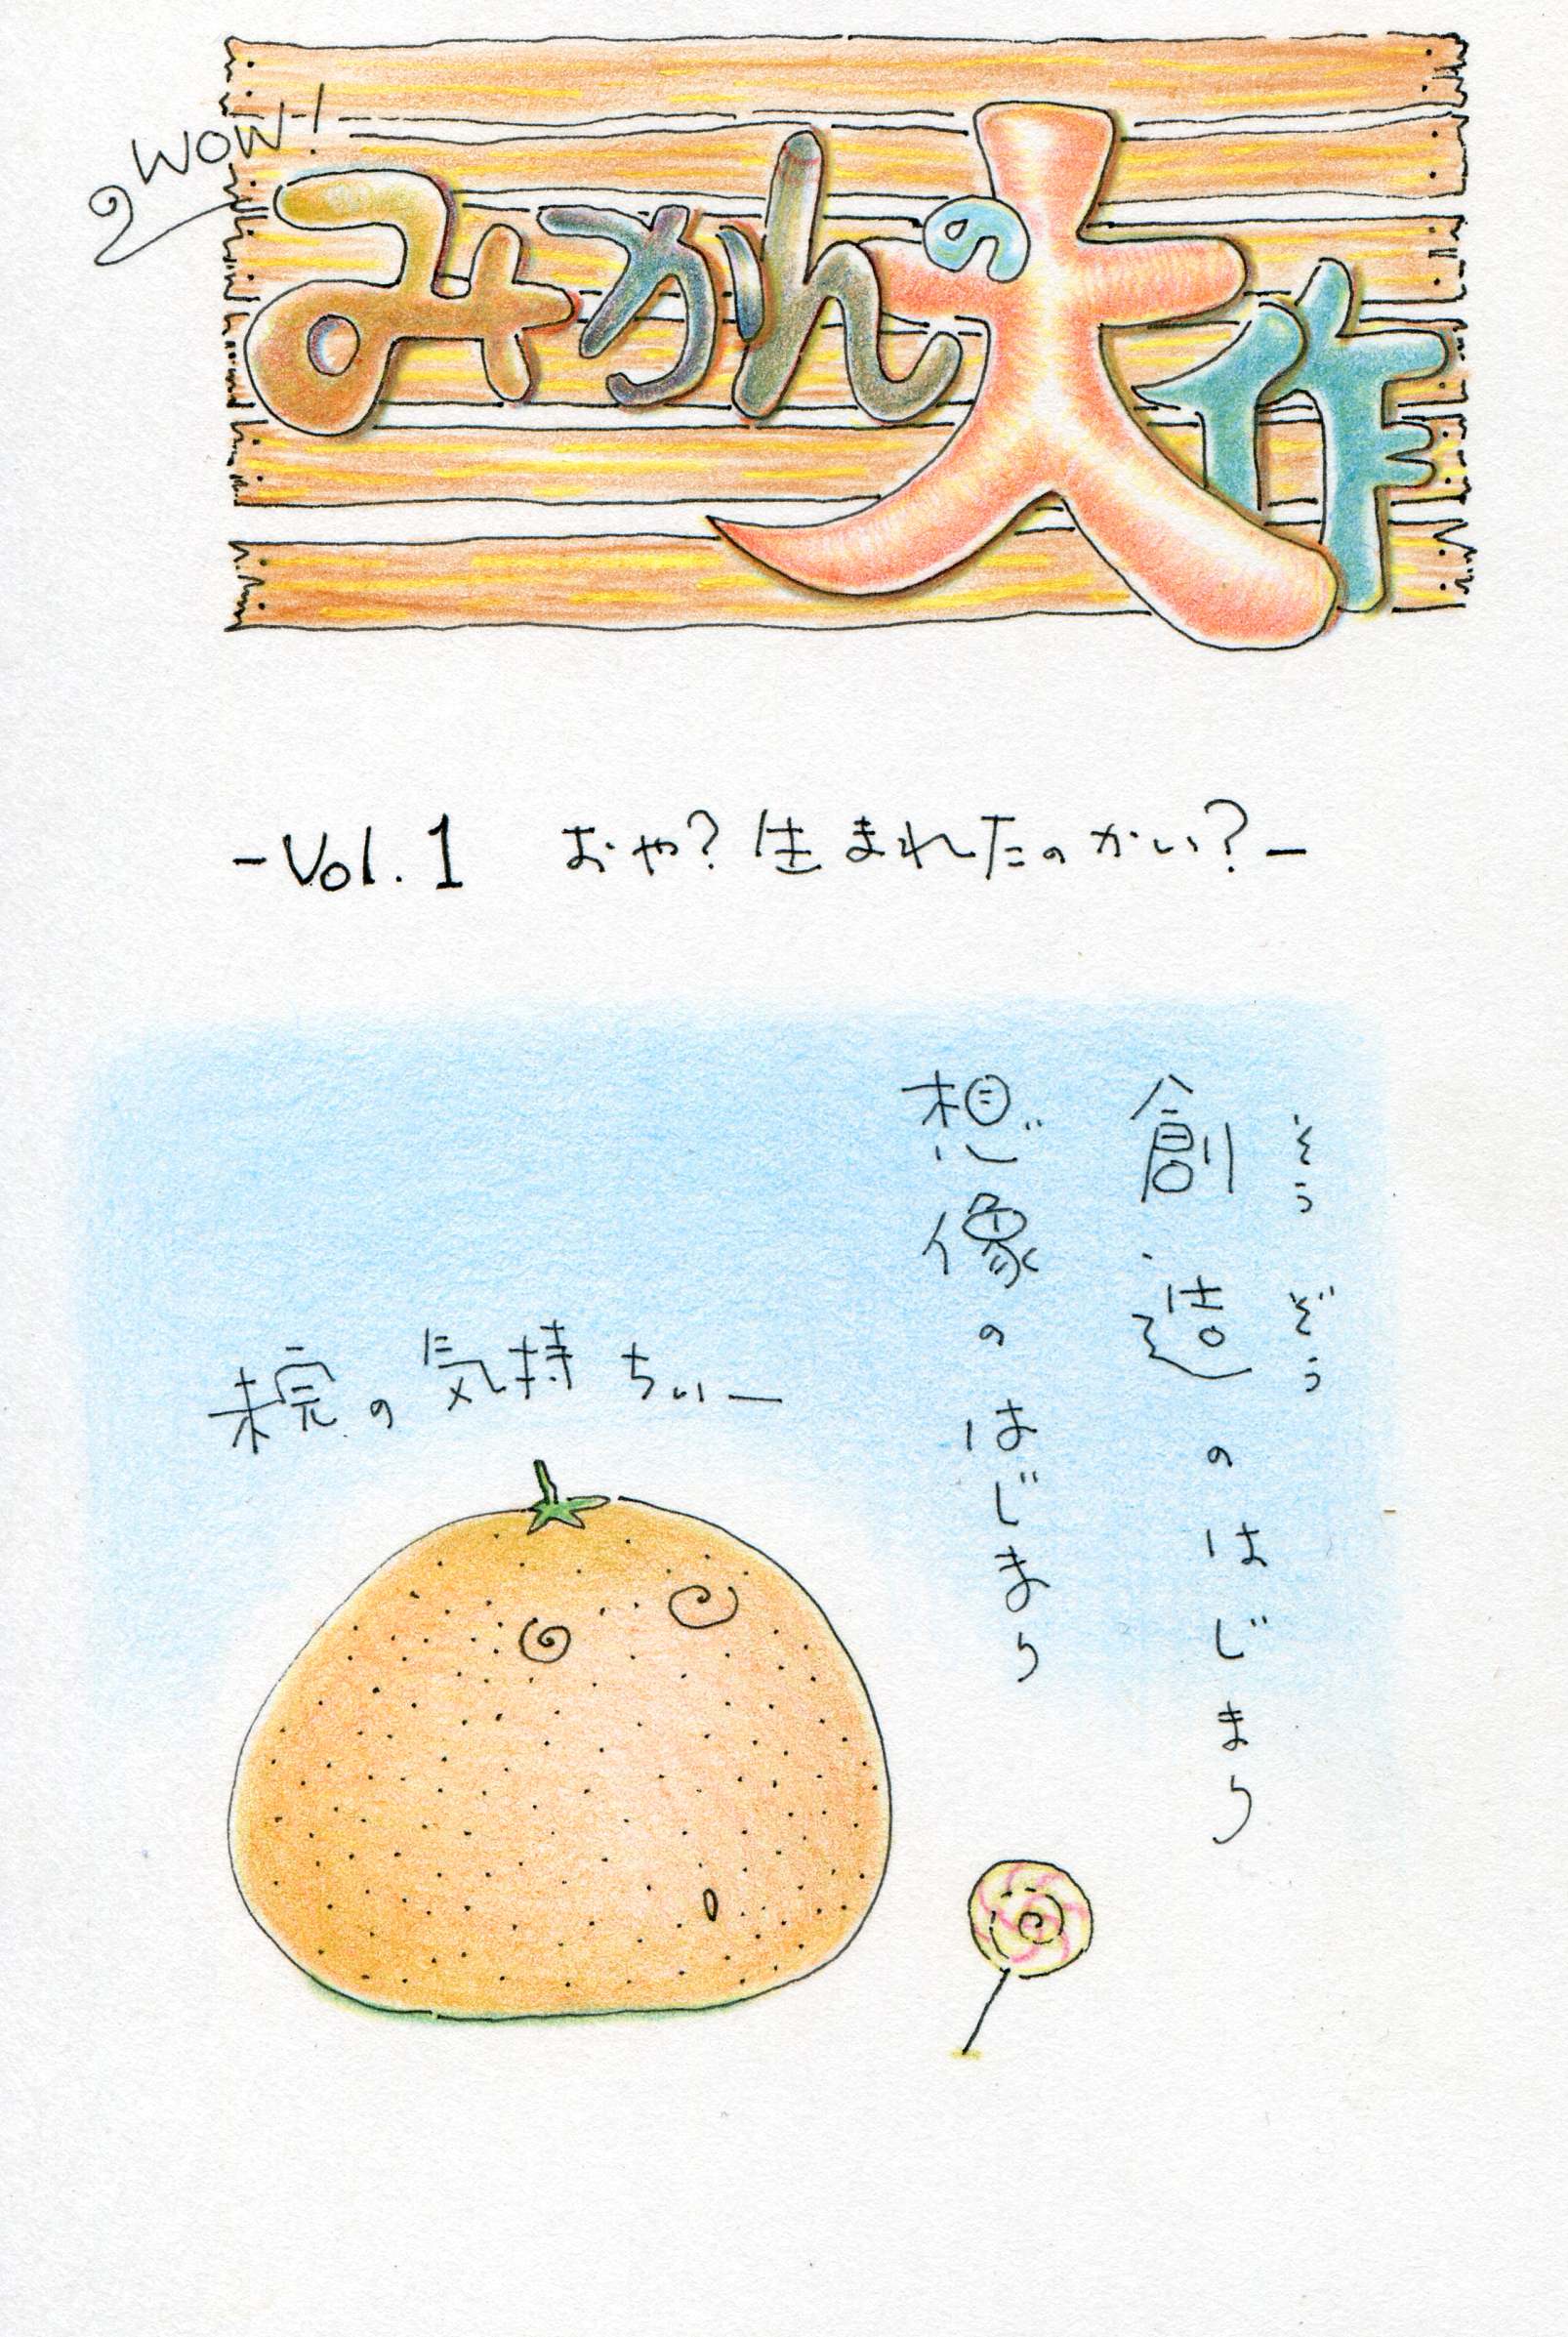 WOW!
みかんの大作
-Vol.1 おや?生まれたのかい?-
そうぞう
創造のはじまり
想像のはじまり
未完の気持ちぃー